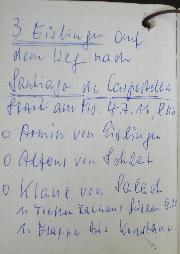 3 Eislinger auf
dem Weg nach
Santiago de Compostella
Start am Fr. 4.7.11,
o Armin von Eislingen
o Alfons von Schlat
o Klaus von Salach
1. Treffen Rathaus
1. Etappe bis Konstanz